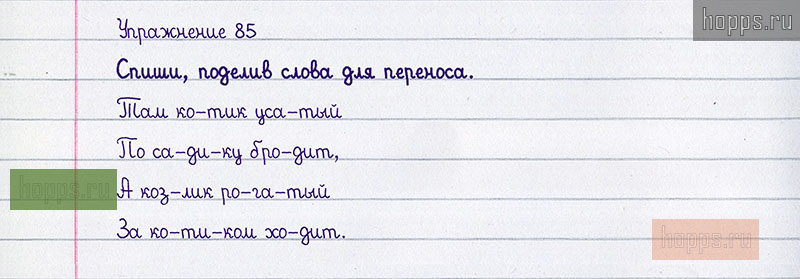 hopps.ru
Упражнение 85
Спиши, поделив слова для переноса.
Там ко-тик уса-тый
По са-ди-ку бро-дит,
hopps.ru
А коз-лик ро-га-тый
За ко-ти-ком хо-дит.
hopps.ru